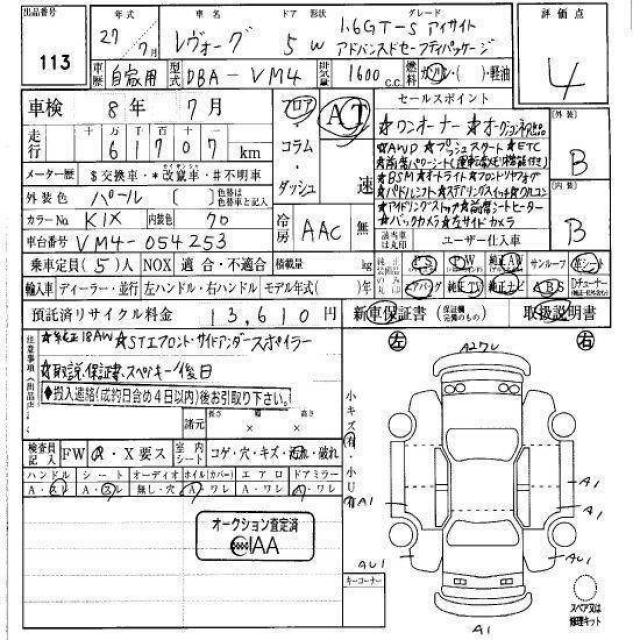 出品番号 年式 車名 ドア 形状 グレード 評価点
113 27年 7月 レヴォーグ 5 W 1.6GT-S アイサイト
アドバンスドセーフティパッケージ
4
車歴 自家用 型式 DBA-VM4 排気量 1600 c.c. 燃料 ガソリン・( )・軽油
車検 8年 7月 フロア AT セールスポイント
走行 十 万 千 百 十 km
61707
コラム
★ワンオーナー ★オークション
★AWD ★プッシュスタート ★ETC
★前席パワーシート(運転席メモリ機能付き)
★BSM ★オートライト ★フロントリヤフォグ
★パドルシフト ★ステアリングスイッチ ★クルコン
★アイドリングストップ ★前席シートヒーター
★バックカメラ ★左サイドカメラ
外装 B
内装 B
メーター歴 $交換車・*改竄車・#不明車
ダッシュ 速
外装色 パール [ ] 色替は色替車と記入
カラーNo. K1X 内装色 70
冷房 AAC 無
該当車は丸印 ユーザー仕入車
車台番号 VM4-054253
乗車定員(5)人 NOX 適合・不適合 積載量 kg
純正 PS PW 純正AW サンルーフ 革シート
輸入車 ディーラー・並行 左ハンドル・右ハンドル モデル年式( )年
エアバッグ 純正TV 純正ナビ ABS
預託済リサイクル料金 13,610円
新車保証書 (保証欄完備のもの) 取扱説明書
注意事項(出品店)
★純正18AW ★STIフロント・サイドアンダースポイラー
★取説、保証書、スペアキー/後日
◆搬入連絡(成約日含め4日以内)後お引取り下さい。
諸元 長さ × 幅 × 高さ
検査員記入 FW A・X要ス 室内シート コゲ・穴・キズ・汚れ・破れ
ハンドル シート オーディオ ホイル(カバー) エアロ ドアミラー
A・スレ A・スレ 無し・穴 A ワレ A・ワレ A・ワレ
オークション査定済
AIAA
小キズ有・小U有
キーコーナー
左 右
A2フレ
A1
A1
A1
AU1
AU1
A1
スペア又は
修理キット